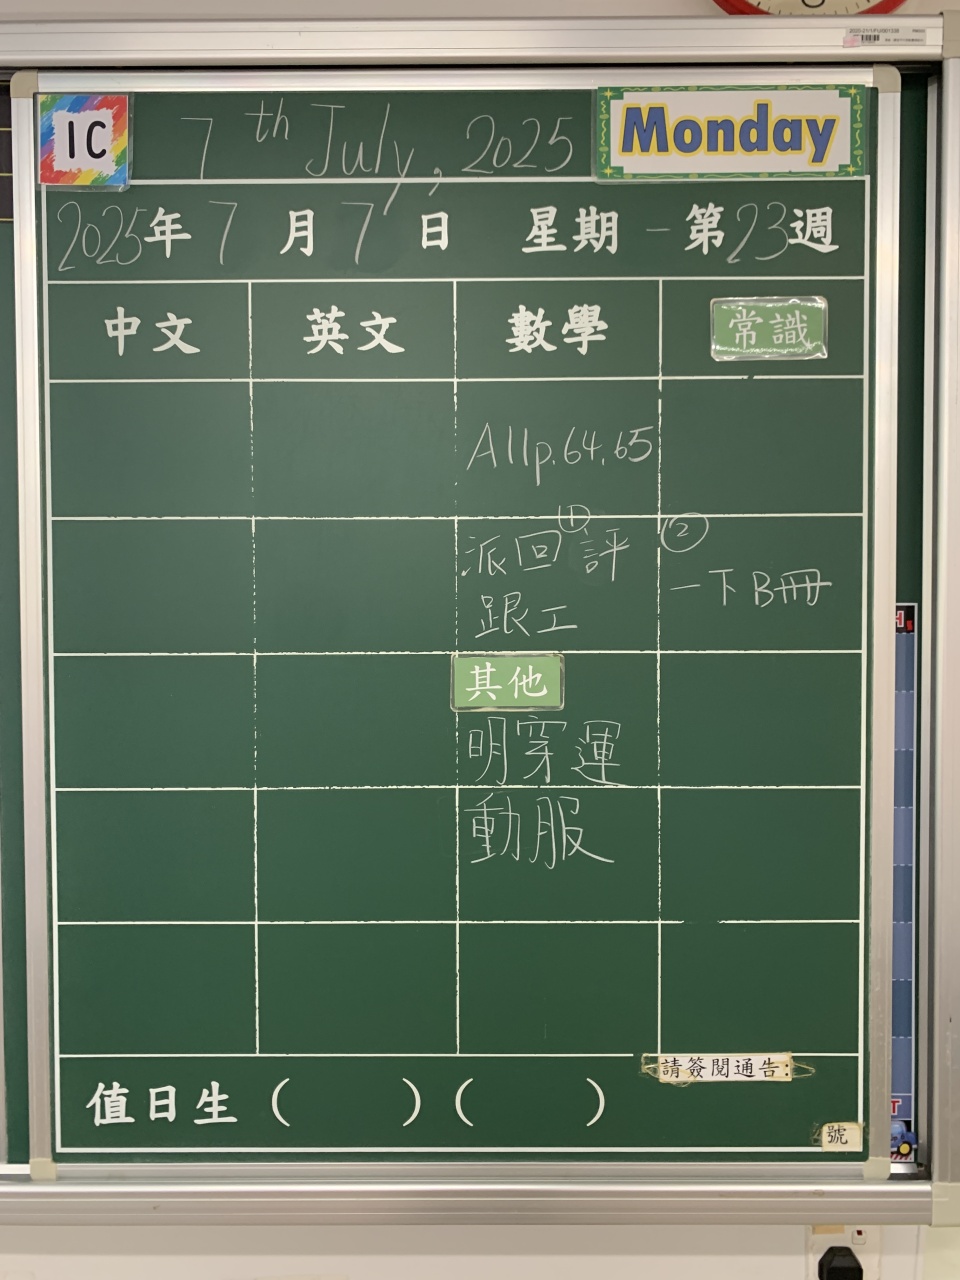 1C 7th July, 2025 Monday
2025年7月7日 星期一 第23週
中文 英文 數學 常識
A11p.64,65
派回①評 ②
跟工 一下B冊
其他
明穿運
動服
請簽閱通告:
值日生( )( )
號